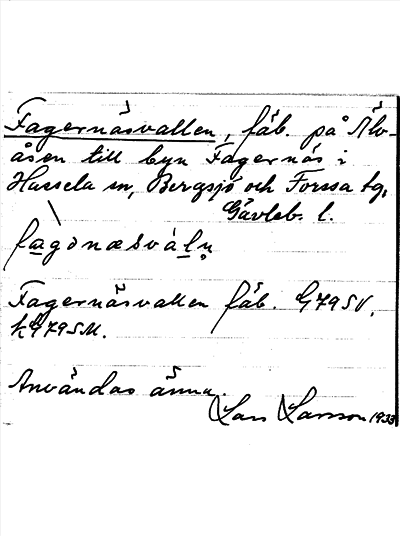 Fagernäsvallen, fäb. på Älv-
åsen till byn Fagernäs i
Hassela sn, Bergsjö och Forssa tg,
Gävleb. l.
fàgənæsválṇ
Fagernäsvallen fäb. G79SV,
k G79SM.
Användas ännu.
Lars Larsson 1933